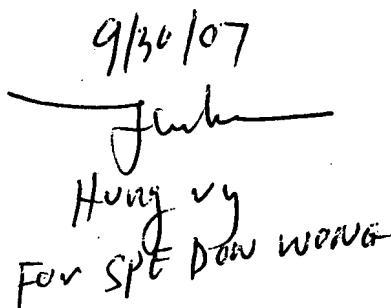 9/30/07
Hung vy
For SPE DON WONG